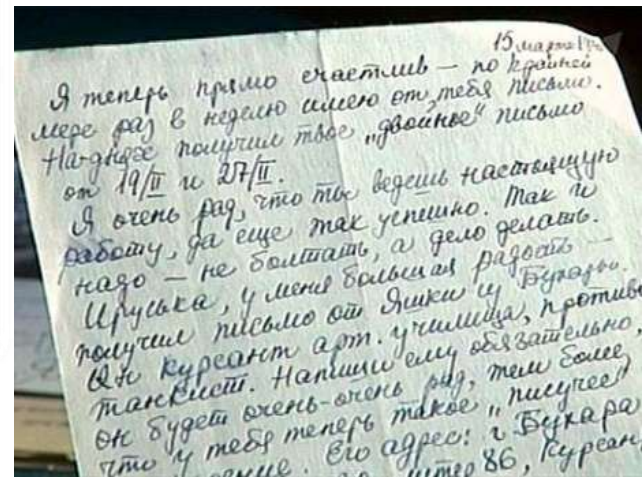 15 марта
Я теперь прямо счастлив – по крайней
мере раз в неделю имею от тебя письмо.
На-днях получил твое „двойное" письмо
от 19/II и 27/II.
Я очень рад, что ты ведешь настоящую
работу, да еще так успешно. Так и
надо – не болтать, а дело делать.
Ируська, у меня большая радость –
получил письмо от Яшки из Бухары.
Он курсант арт. училища, противо
танкист. Напиши ему обязательно,
он будет очень-очень рад, тем более,
что у тебя теперь такое „писучее"
Его адрес: г. Бухара
86, Курсан